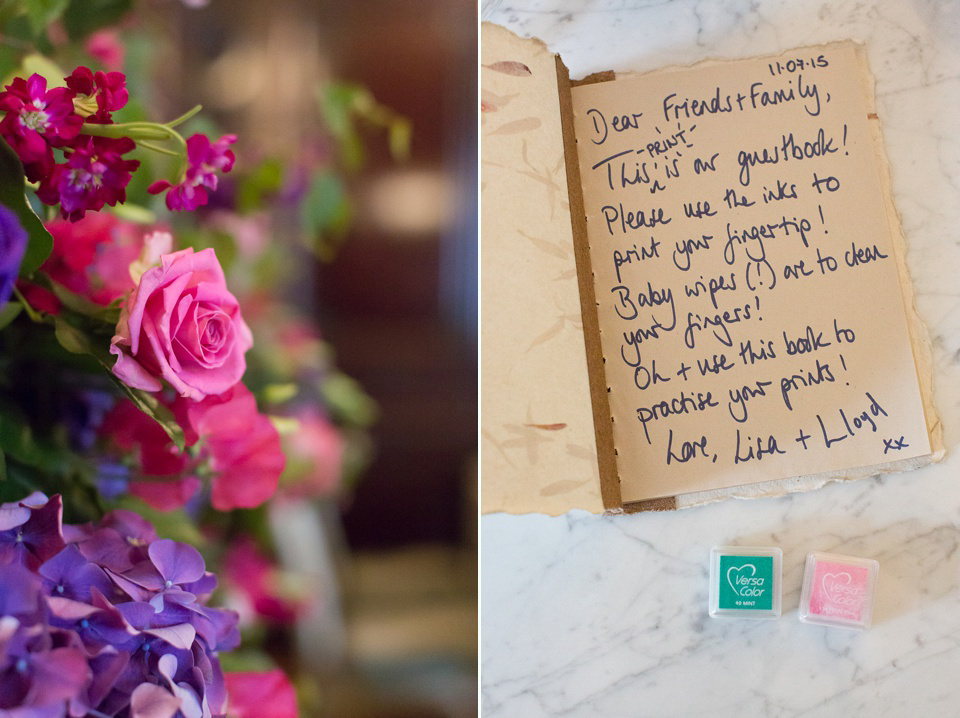 11·07·15
Dear Friends + Family,
PRINT
This is our guestbook!
Please use the inks to
print your fingertip!
Baby wipes (!) are to clean
your fingers!
Oh + use this book to
practise your prints!
Love, Lisa + Lloyd
xx
Versa
Color
Versa
Color